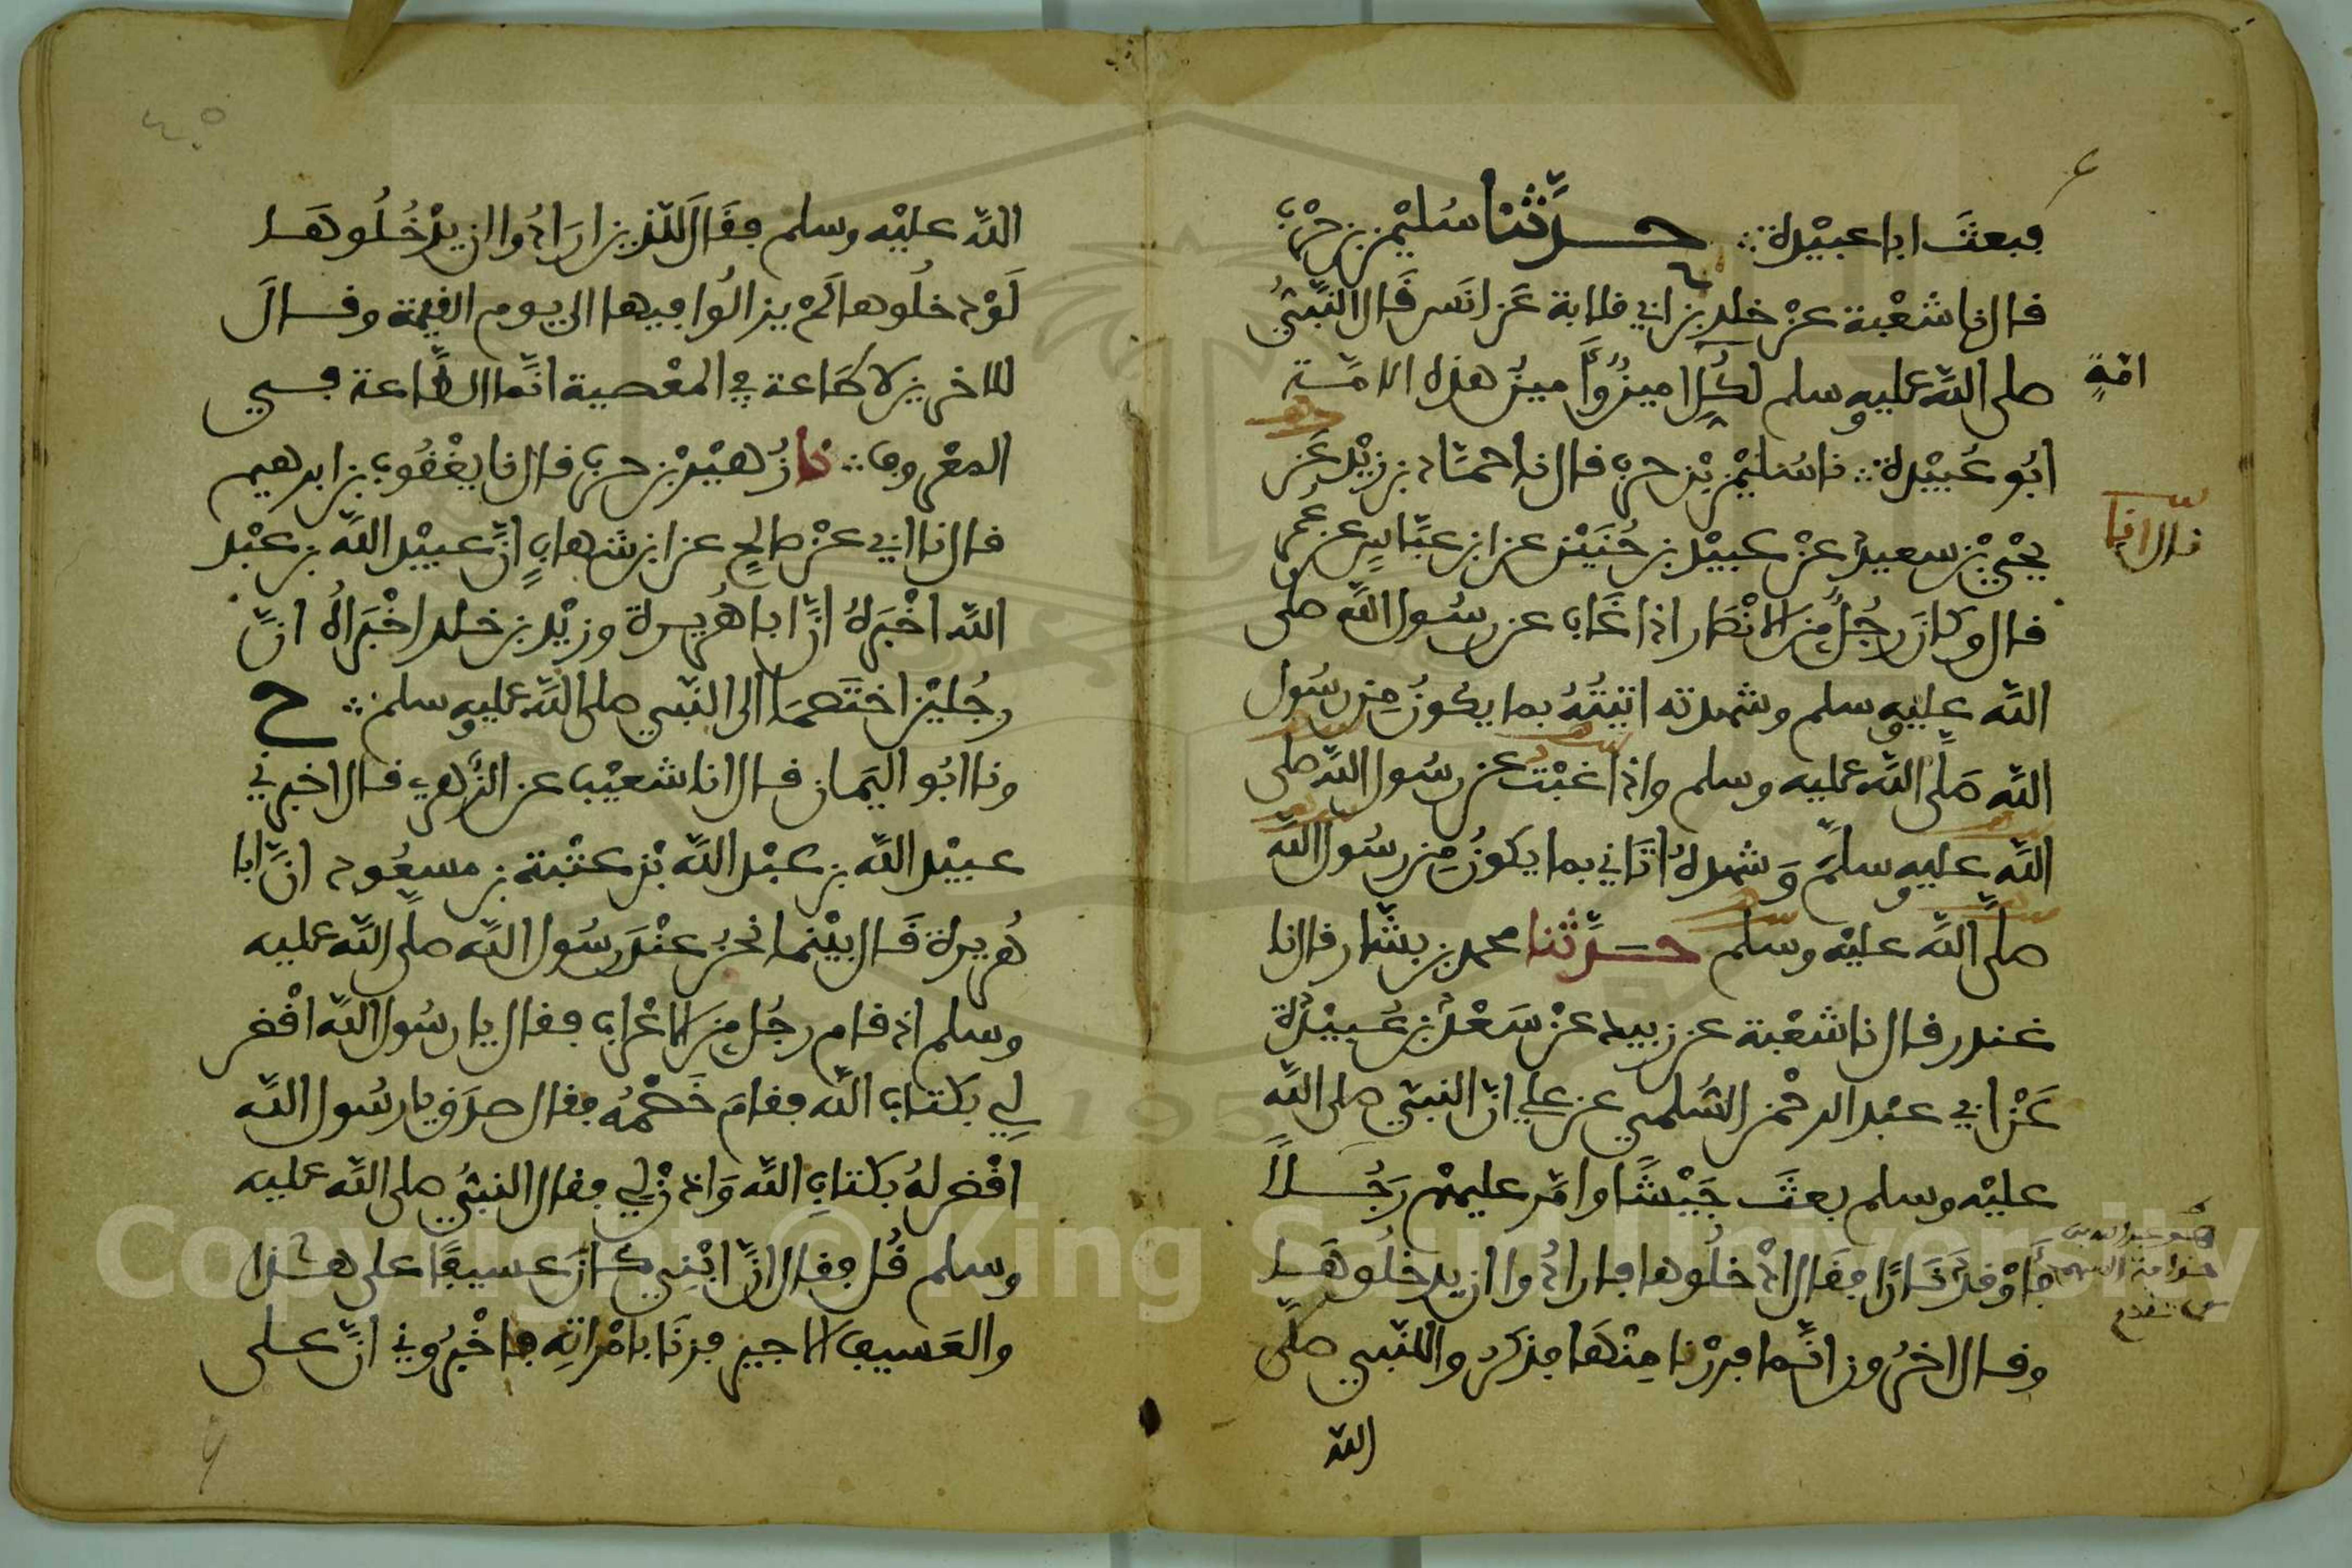 فبعث ابا عبيدة ∴ حدثنا سليمن بن حرب
قال نا شعبة عن خلد عن ابي قلابة عن انس قال النبي
صلى الله عليه وسلم لكل امة امين وامين هذه الامة
ابو عبيدة ∴ نا سليمن بن حرب قال نا حماد بن زيد عن
يحيى بن سعيد عن عبيد بن حنين عن ابن عباس عن عمر
قال وكان رجل من الانصار اذا غاب عن رسول الله صلى
الله عليه وسلم وشهدته اتيته بما يكون من رسول
الله صلى الله عليه وسلم واذا غبت عن رسول الله صلى
الله عليه وسلم وشهده اتاني بما يكون من رسول الله
صلى الله عليه وسلم حدثنا محمد بن بشار قال نا
غندر قال نا شعبة عن زبيد عن سعد بن عبيدة
عن ابي عبد الرحمن السلمي عن علي ان النبي صلى الله
عليه وسلم بعث جيشا وامر عليهم رجلا
فاوقد نارا فقال ادخلوها فارادوا ان يدخلوها
وقال اخرون انما فررنا منها فذكروا للنبي صلى
الله
امة
قال انا
هو عبد الله بن
حذافة السهمي
الله عليه وسلم فقال للذين ارادوا ان يدخلوها
لو دخلوها لم يزالوا فيها الى يوم القيمة وقال
للاخرين لا طاعة في المعصية انما الطاعة في
المعروف ∴ نا زهير بن حرب قال نا يعقوب بن ابرهيم
قال نا ابي عن صالح عن ابن شهاب ان عبيد الله بن عبد
الله اخبره ان ابا هريرة وزيد بن خلد اخبراه ان
رجلين اختصما الى النبي صلى الله عليه وسلم ∴ ح
ونا ابو اليمان قال انا شعيب عن الزهري قال اخبرني
عبيد الله بن عبد الله بن عتبة بن مسعود ان ابا
هريرة قال بينما نحن عند رسول الله صلى الله عليه
وسلم اذ قام رجل من الاعراب فقال يا رسول الله اقض
لي بكتاب الله فقام خصمه فقال صدق يا رسول الله
اقض له بكتاب الله واذن لي فقال النبي صلى الله عليه
وسلم قل فقال ان ابني كان عسيفا على هذا
والعسيف الاجير فزنا بامراته فاخبروني ان على